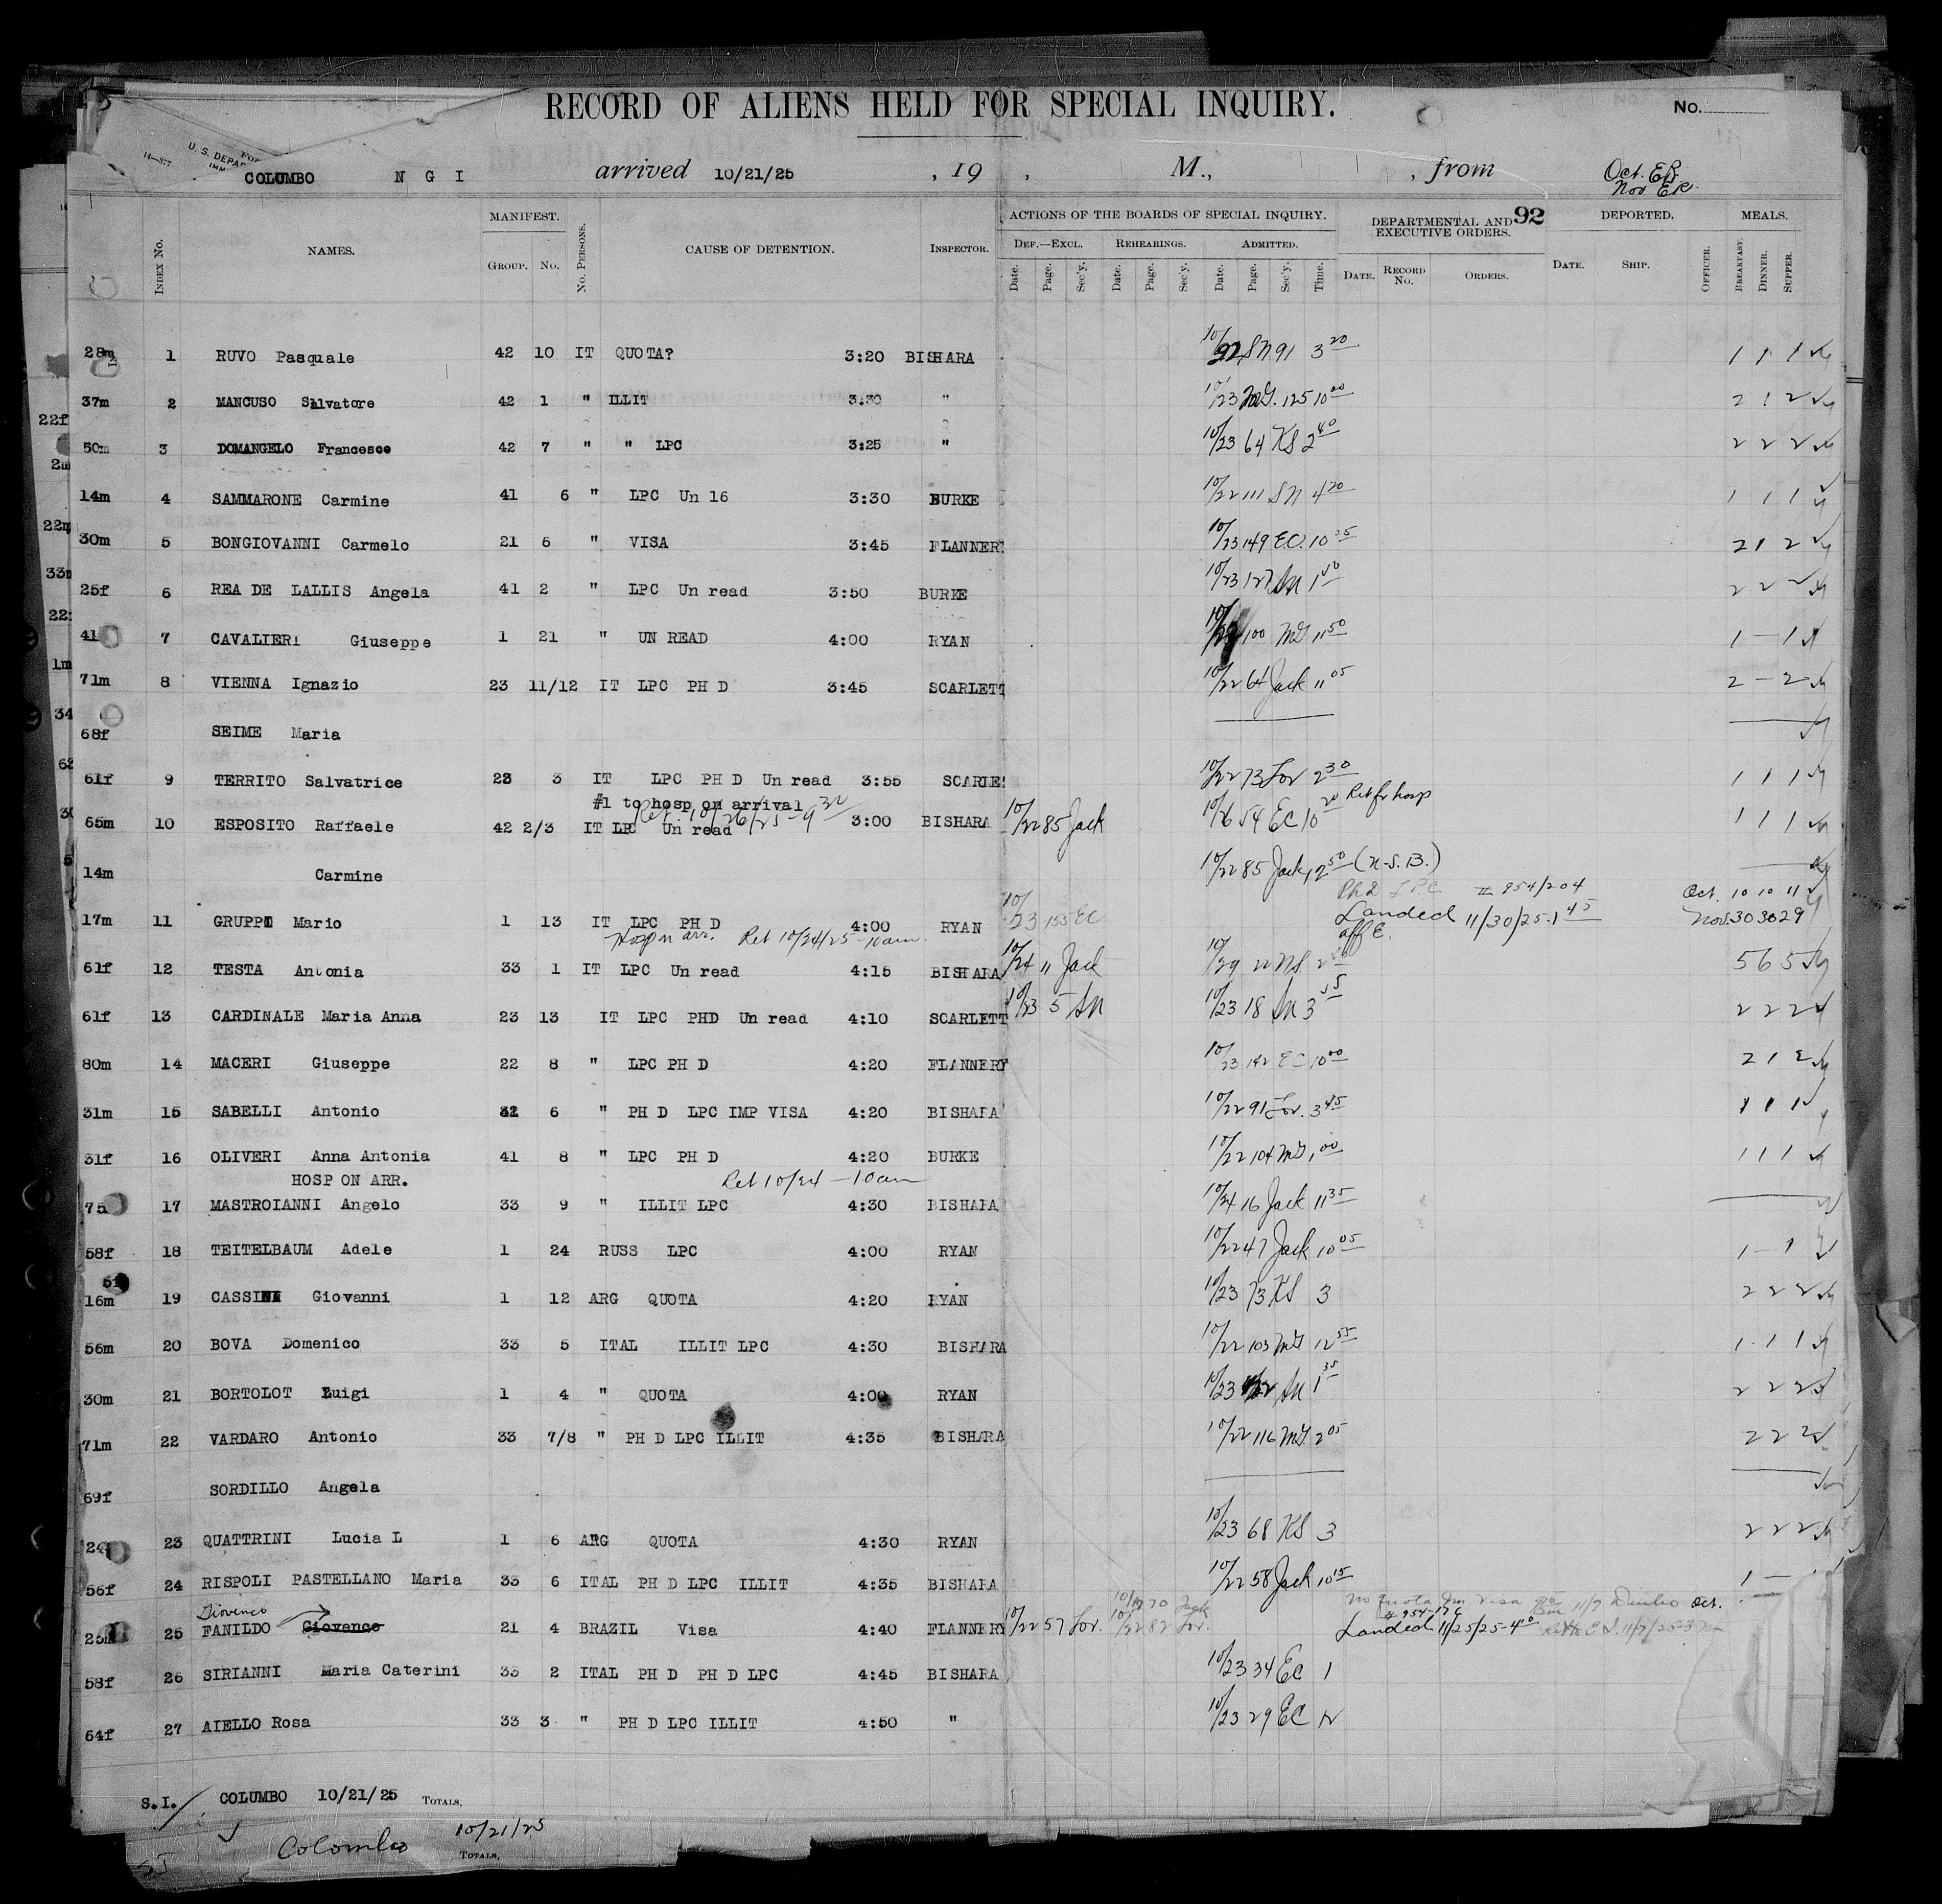 RECORD OF ALIENS HELD FOR SPECIAL INQUIRY.
No.
14—377
U. S. DEPAR
COLUMBO N G I arrived 10/21/25 , 19 , M., , from
Oct. ER
Nov ER.
92
INDEX No. NAMES. MANIFEST. GROUP. No. No. PERSONS. CAUSE OF DETENTION. INSPECTOR. ACTIONS OF THE BOARDS OF SPECIAL INQUIRY. DEPARTMENTAL AND EXECUTIVE ORDERS. DEPORTED. MEALS.
DEF.—EXCL. REHEARINGS. ADMITTED.
Date. Page. Sec'y. Date. Page. Sec'y. Date. Page. Sec'y. Time. DATE. RECORD No. ORDERS. DATE. SHIP. OFFICER. BREAKFAST. DINNER. SUPPER.
28m 1 RUVO Pasquale 42 10 IT QUOTA? 3:20 BISHARA 10/22 SN 91 3 20 1 1 1
37m 2 MANCUSO Salvatore 42 1 " ILLIT 3:30 " 10/23 MG. 125 10 00 2 1 2
50m 3 DOMANGELO Francesco 42 7 " " LPC 3:25 " 10/23 64 KS 2 40 2 2 2
14m 4 SAMMARONE Carmine 41 6 " LPC Un 16 3:30 BURKE 10/22 111 SN 4 20 1 1 1
30m 5 BONGIOVANNI Carmelo 21 6 " VISA 3:45 FLANNERY 10/23 149 E.C. 10 35 2 1 2
25f 6 REA DE LALLIS Angela 41 2 " LPC Un read 3:50 BURKE 10/23 127 SN 1 2 2 2
41 7 CAVALIERI Giuseppe 1 21 " UN READ 4:00 RYAN 10/22 100 MG 11 50 1 — 1
71m 8 VIENNA Ignazio 23 11/12 IT LPC PH D 3:45 SCARLETT 10/22 64 Jack 11 05 2 — 2
68f SEIME Maria
61f 9 TERRITO Salvatrice 23 3 IT LPC PH D Un read 3:55 SCARLE 10/22 73 Lov 2 30 1 1 1
#1 to hosp on arrival
Ret 10/26/25 - 9 30
65m 10 ESPOSITO Raffaele 42 2/3 IT LPC Un read 3:00 BISHARA 10/22 85 Jack 10/26 54 EC 10 20 Ret fr hosp 1 1 1
14m Carmine 10/22 85 Jack 12 50 (N.S.B.)
PhD LPC # 954/204 Oct. 10 10 11
17m 11 GRUPPI Mario 1 13 IT LPC PH D 4:00 RYAN 10/23 155 EC Landed 11/30/25-1 45 Nov. 30 30 29
Hosp on arr. Ret 10/24/25-10am. aff E.
61f 12 TESTA Antonia 33 1 IT LPC Un read 4:15 BISHARA 10/24 11 Jack 10/29 22 NS 2 5 6 5
61f 13 CARDINALE Maria Anna 23 13 IT LPC PHD Un read 4:10 SCARLETT 10/23 5 SN 10/23 18 SN 3 2 2 2
80m 14 MACERI Giuseppe 22 8 " LPC PH D 4:20 FLANNERY 10/23 142 EC 10 00 2 1 2
31m 15 SABELLI Antonio 6 " PH D LPC IMP VISA 4:20 BISHARA 10/22 91 Lov. 3 45 1 1 1
31f 16 OLIVERI Anna Antonia 41 8 " LPC PH D 4:20 BURKE 10/22 104 MG 1 00 1 1 1
HOSP ON ARR. Ret 10/24 — 10am
75 17 MASTROIANNI Angelo 33 9 " ILLIT LPC 4:30 BISHARA 10/24 16 Jack 11 35
58f 18 TEITELBAUM Adele 1 24 RUSS LPC 4:00 RYAN 10/22 47 Jack 10 05 1 — 1
16m 19 CASSINI Giovanni 1 12 ARG QUOTA 4:20 RYAN 10/23 73 KS 3 2 2 2
56m 20 BOVA Domenico 33 5 ITAL ILLIT LPC 4:30 BISHARA 10/22 103 MG 12 55 1 1 1
30m 21 BORTOLOT Luigi 1 4 " QUOTA 4:00 RYAN 10/23 SN 1 35 2 2 2
71m 22 VARDARO Antonio 33 7/8 " PH D LPC ILLIT 4:35 BISHARA 10/22 116 MG 2 05 2 2 2
69f SORDILLO Angela
24 23 QUATTRINI Lucia L 1 6 ARG QUOTA 4:30 RYAN 10/23 68 KS 3 2 2 2
56f 24 RISPOLI PASTELLANO Maria 33 6 ITAL PH D LPC ILLIT 4:35 BISHARA 10/22 58 Jack 10 15 1 —
Giovenco 70 Jack No Quota Im. Visa 11/7 Duilio Oct.
# 954-176
25m 25 FANILDO Giovenco 21 4 BRAZIL Visa 4:40 FLANNERY 10/22 57 Lov. 10/22 82 Lov. Landed 11/25/25-4 40
58f 26 SIRIANNI Maria Caterini 33 2 ITAL PH D PH D LPC 4:45 BISHARA 10/23 34 EC 1
64f 27 AIELLO Rosa 33 3 " PH D LPC ILLIT 4:50 " 10/23 29 EC 12
S.I. COLUMBO 10/21/25 TOTALS,
SI Colombo 10/21/25 TOTALS,